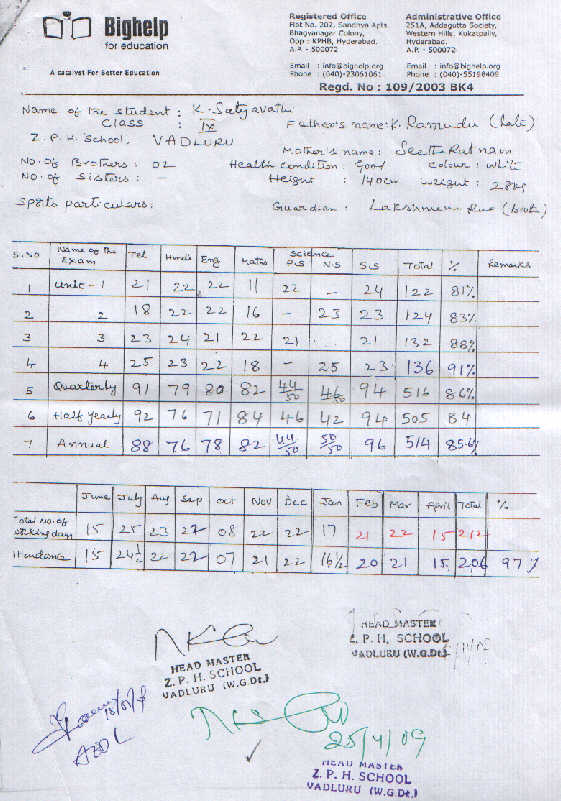 Bighelp
for education
A catalyst For Better Education
Registered Office
Flat No. 202, Sandhya Apts.
Bhagyanagar Colony,
Opp : KPHB, Hyderabad.
A.P. - 500072
Email : info@bighelp.org
Phone : (040)-23061061
Administrative Office
251A, Addagutta Society,
Western Hills, Kukatpally,
Hyderabad.
A.P. - 500072
Email : info@bighelp.org
Phone : (040)-55198409
Regd. No : 109/2003 BK4
Name of the student : K. Satyavathi
Class : IX
Father's name: K. Ramudu (Late)
Z. P. H. School, VADLURU
Mother's name: Seetha Ratnam
No. of Brothers : 02 Health condition : Good Colour : white
No. of Sisters : - Height : 140cm weight : 28Kg
Sports particulars: Guardian :
S.No Name of the Exam Tel Hindi Eng Maths Science P.S N.S S.S Total % Remarks
1 Unit - 1 21 22 22 11 22 - 24 122 81%
2 2 18 22 22 16 - 23 23 124 83%
3 3 23 24 21 22 21 ... 21 132 88%
4 4 25 23 22 18 - 25 23 136 91%
5 Quarterly 91 79 80 82 44/50 46 94 516 86%
6 Half yearly 92 76 71 84 46 42 94 505 84
7 Annual 88 76 78 82 44/50 50/50 96 514 85.6%
June July Aug Sep Oct Nov Dec Jan Feb Mar April Total %
Total No. of working days 15 25 23 22 08 22 22 17 21 22 15 212
Attendance 15 24½ 22 22 07 21 22 16½ 20 21 15 206 97%
HEAD MASTER
Z. P. H. SCHOOL
VADLURU (W.G.Dt.)
HEAD MASTER
Z. P. H. SCHOOL
VADLURU (W.G.Dt.)
25/4/09
HEAD MASTER
Z. P. H. SCHOOL
VADLURU (W.G.Dt.)